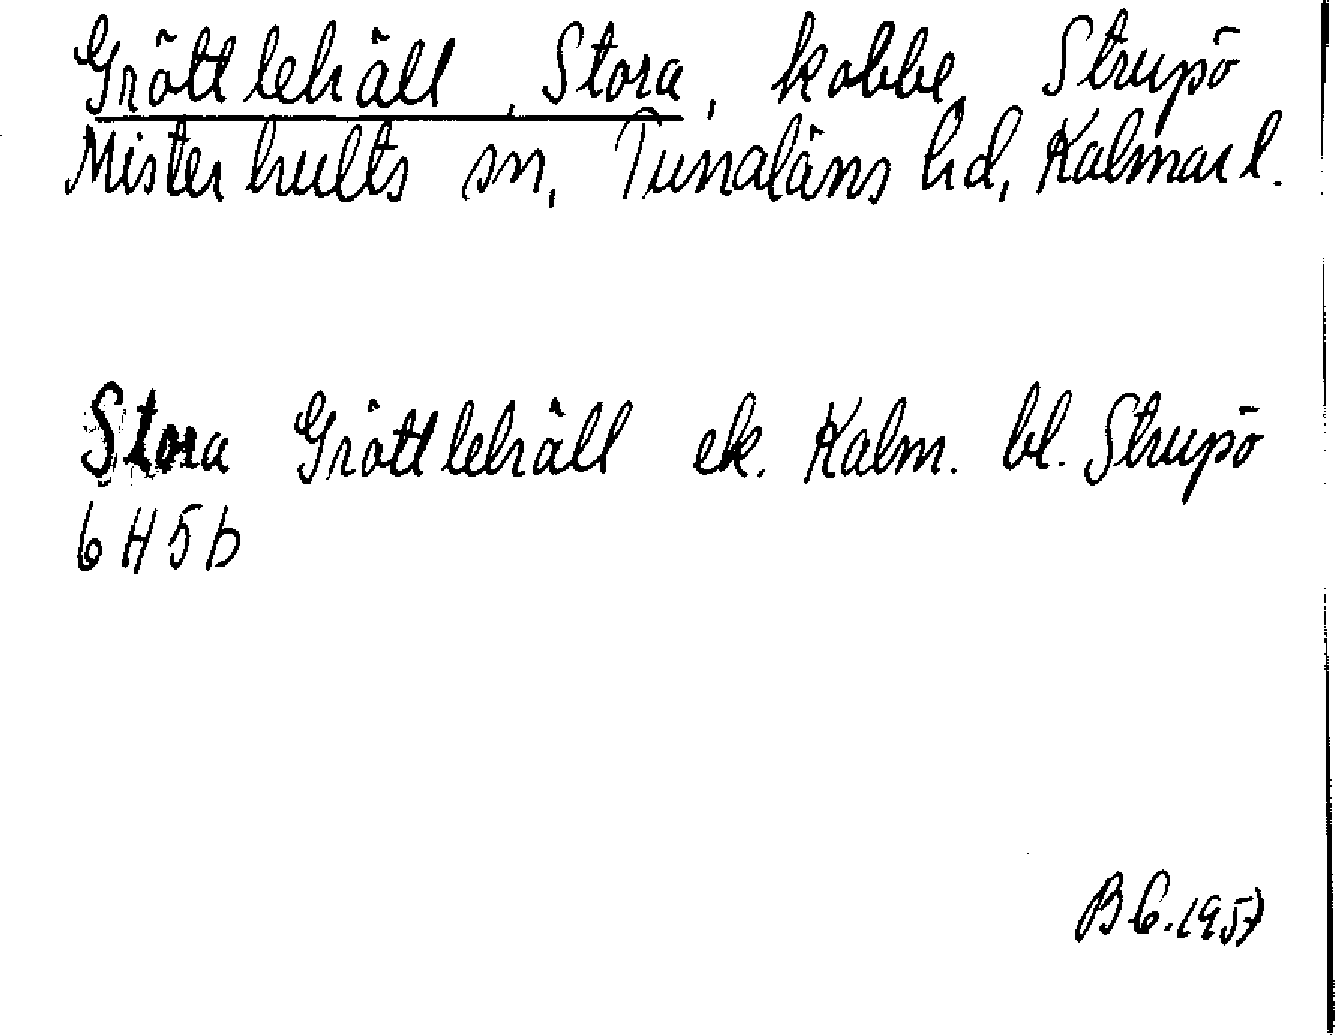 Gröttlehäll, Stora, kobbe, Strupö
Misterhults sn, Tunaläns hd, Kalmar l.
Stora Gröttlehäll ek. Kalm. bl. Strupö
6H5b
1957